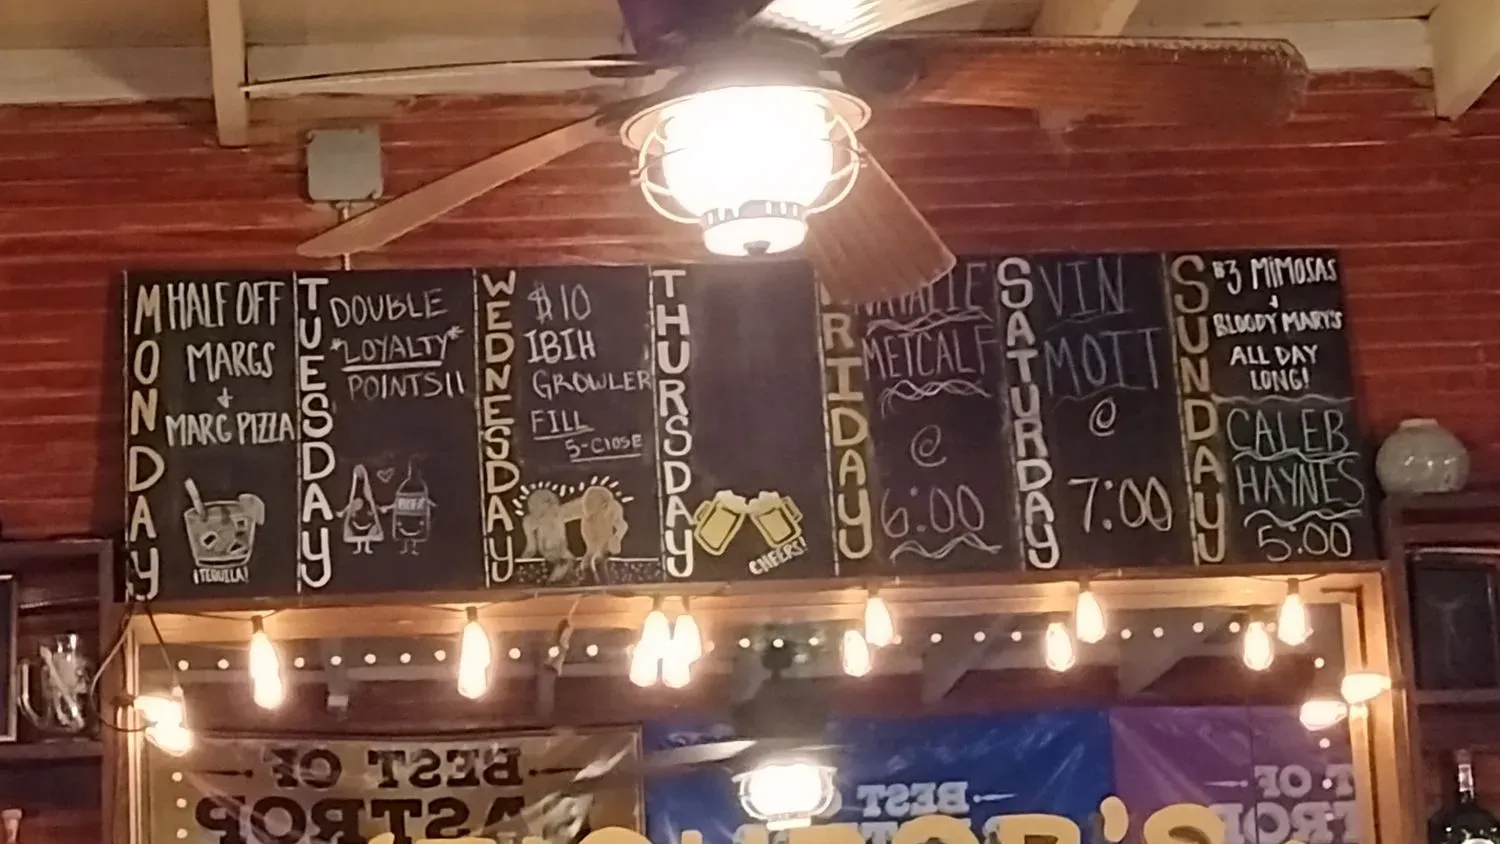 MONDAY
HALF OFF
MARGS
&
MARG PIZZA
¡TEQUILA!
TUESDAY
DOUBLE
*LOYALTY*
POINTS!!
WEDNESDAY
$10
IBIH
GROWLER
FILL
5-CLOSE
THURSDAY
CHEERS!
FRIDAY
NATALIE
METCALF
@
6:00
SATURDAY
VIN
MOTT
@
7:00
SUNDAY
$3 MIMOSAS
&
BLOODY MARY'S
ALL DAY
LONG!
CALEB
HAYNES
5:00
BEST OF
BASTROP
BEST